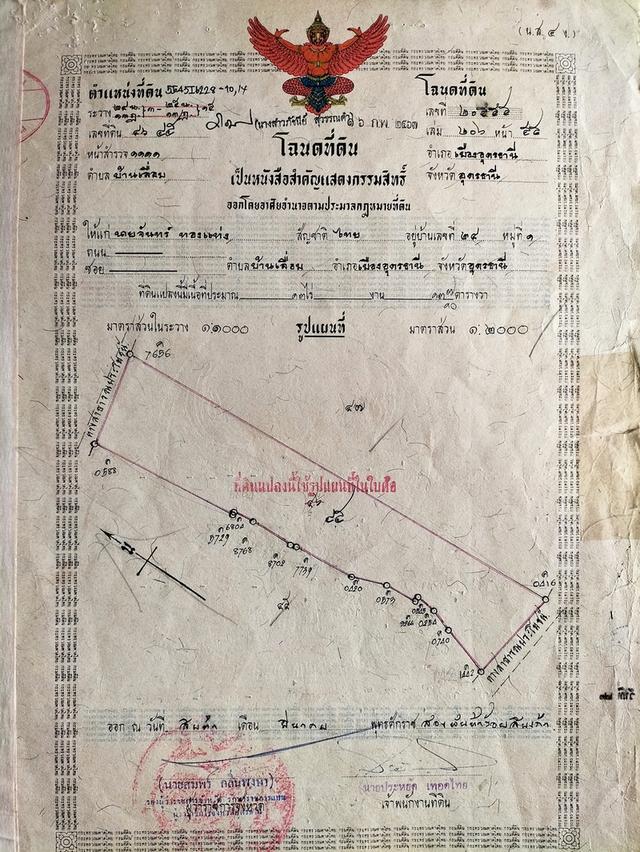 (น.ส. ๔ จ.)
ตำแหน่งที่ดิน 5545IV228-10,14
ระวาง
เลขที่ดิน ๔๖ ๕๕
หน้าสำรวจ ๑๑๑๑
ตำบล บ้านเลื่อม
โฉนดที่ดิน
เลขที่ ๒๐๕๕๔
เล่ม ๒๐๖ หน้า ๕๔
อำเภอ เมืองอุดรธานี
จังหวัด อุดรธานี
๖ ก.พ. ๒๕๖๓
โฉนดที่ดิน
เป็นหนังสือสำคัญแสดงกรรมสิทธิ์
ออกโดยอาศัยอำนาจตามประมวลกฎหมายที่ดิน
ให้แก่ นายจันทร์ ทองแท่ง สัญชาติ ไทย อยู่บ้านเลขที่ ๒๔ หมู่ที่ ๑
ถนน
ซอย ตำบล บ้านเลื่อม อำเภอ เมืองอุดรธานี จังหวัด อุดรธานี
ที่ดินแปลงนี้มีเนื้อที่ประมาณ ๑๓ ไร่ งาน ตารางวา
มาตราส่วนในระวาง ๑:๑๐๐๐ รูปแผนที่ มาตราส่วน ๑:๒๐๐๐
7696
ทางสาธารณประโยชน์
๔๗
0588
ที่ดินแปลงนี้ใช้รูปแผนที่ในใบต่อ
๔๖
๕๕
6802
9729
8768
8702
7739
0420
0573
0416
0740
1422
๔๕
น
ทางสาธารณประโยชน์
ออก ณ วันที่ สิบห้า เดือน มีนาคม พุทธศักราช สองพันห้าร้อยสิบเก้า
นายประหยด เทอดไทย
เจ้าพนักงานที่ดิน
ผู้ว่าราชการจังหวัด